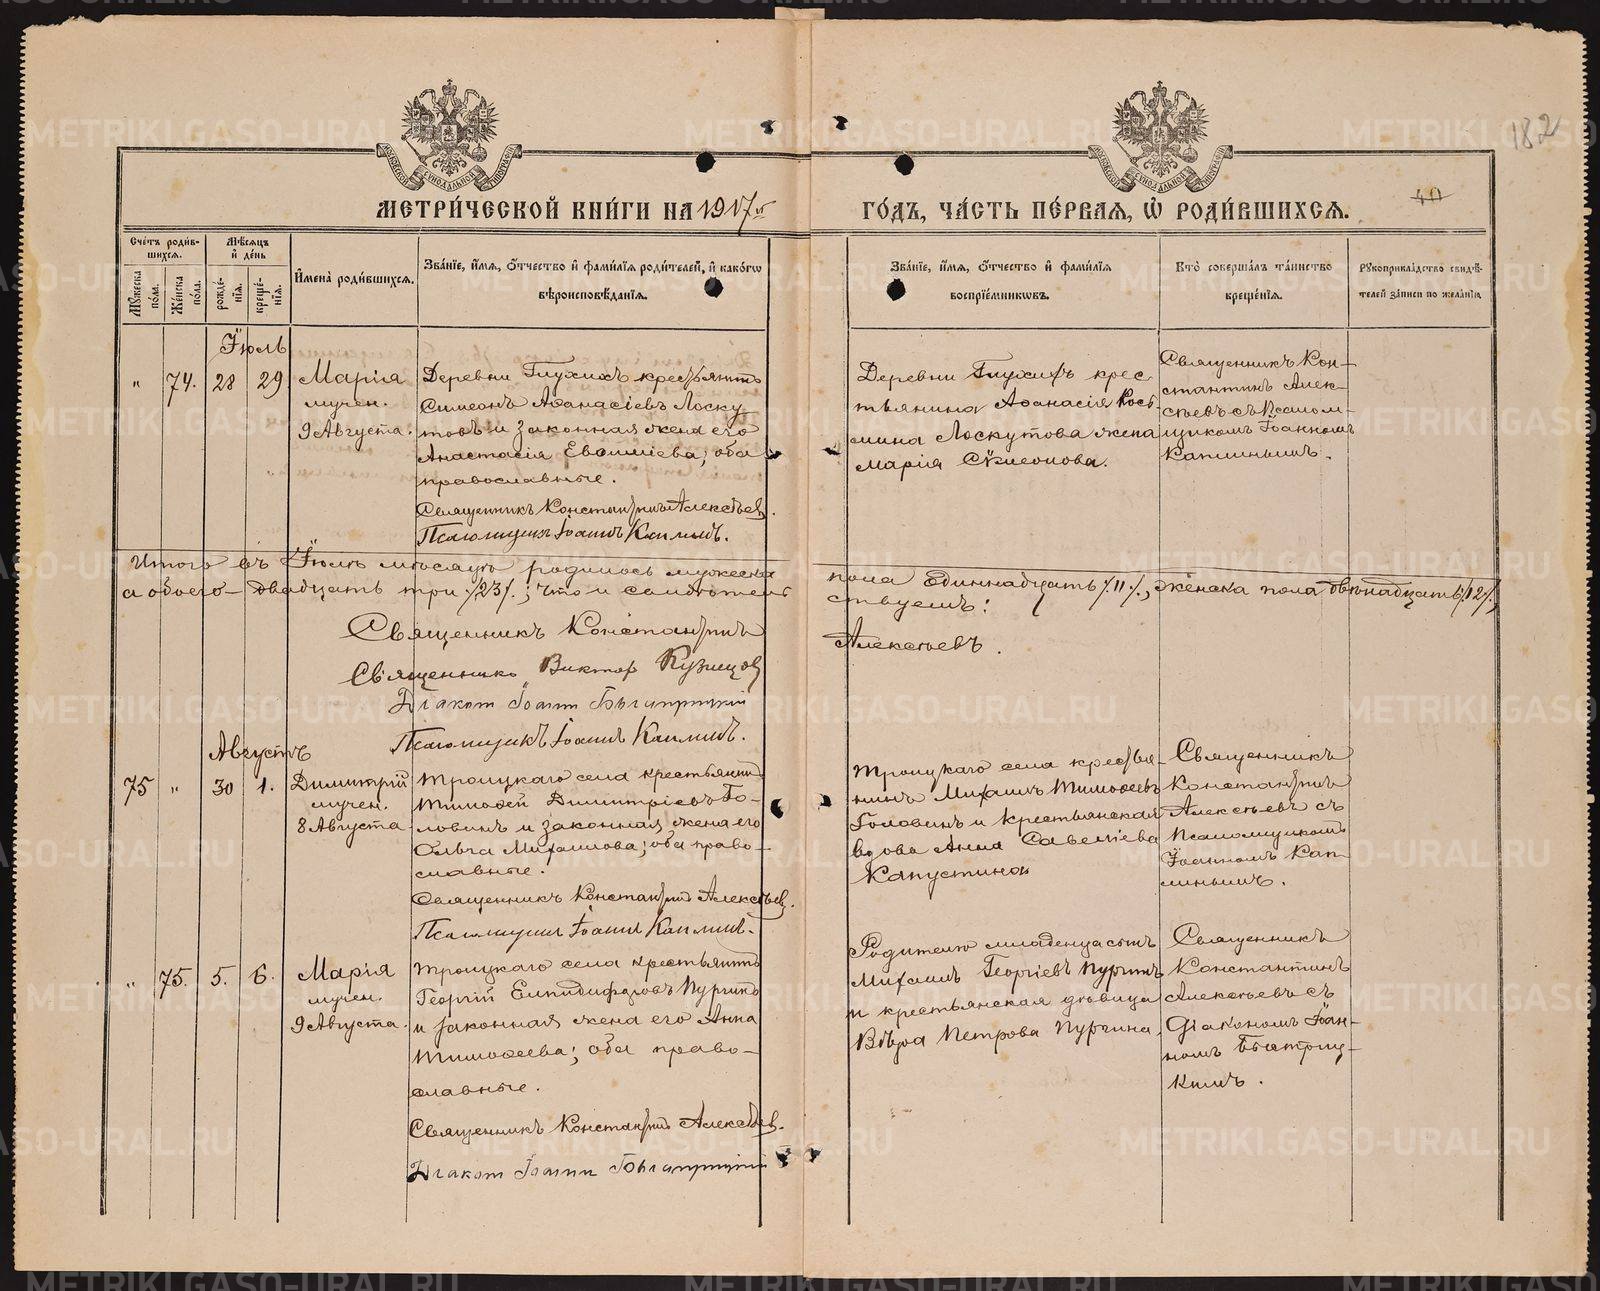 182
40
МЕТРИ́ЧЕСКОЙ КНИ́ГИ НА 1917й ГО́ДЪ, ЧА́СТЬ ПЕ́РВАЯ, Ѡ РОДИ́ВШИХСЯ.
Сче́тъ роди́в-
шихся.
Му́жеска по́ла.
Же́нска по́ла.
Мѣ́сяцъ
и де́нь
рожде́-
нія.
креще́-
нія.
Имена̀ роди́вшихся.
Зва́ніе, и́мя, о́тчество и фами́лія роди́телей, и како́гѡ
вѣроисповѣ́данія.
Зва́ніе, и́мя, о́тчество и фами́лія
воспріе́мниковъ.
Кто̀ соверша́лъ та́инство
креще́нія.
Рукоприкла́дство свидѣ́-
телей за́писи по жела́нію.
Іюль
" 74. 28 29
Марія
мучен.
9 Августа.
Деревни Глухихъ крестьянинъ
Симеонъ Аѳанасіевъ Лоску
товъ и законная жена его
Анастасія Евѳиміева; оба
православные.
Священникъ Константинъ Алексѣевъ.
Псаломщикъ Іоаннъ Каплинъ.
Деревни Глухихъ крес
тьянина Аѳанасія Кось
мина Лоскутова жена
Марія Симеонова.
Священникъ Кон-
стантинъ Алек-
сѣевъ съ Псалом-
щикомъ Іоанномъ
Каплинымъ.
Итого въ Іюлѣ мѣсяцѣ родилось мужеска пола одиннадцать /11/., женска пола двѣнадцать /12/.,
а обоего - двадцать три /23/.; что и свидѣтель
ствуемъ:
Священникъ Константинъ Алексѣевъ.
Священникъ Виктор Кузнецовъ
Діакон Іоанн Быстрицкій
Псаломщикъ Іоаннъ Каплинъ.
Августъ
75 " 30 1.
Димитрій
мучен.
8 Августа
Троицкаго села крестьянинъ
Тимоѳей Димитріевъ Го-
ловинъ и законная жена его
Ольга Михаилова; оба право-
славные.
Священникъ Константинъ Алексѣевъ.
Псаломщикъ Іоаннъ Каплинъ.
Троицкаго села крестья-
нинъ Михаилъ Тимоѳеевъ
Головинъ и крестьянская
вдова Анна Савеліева
Капустина
Священникъ
Константинъ
Алексѣевъ съ
Псаломщикомъ
Іоанномъ Кап-
линымъ.
" 75. 5. 6.
Марія
мучен.
9 Августа.
Троицкаго села крестьянинъ
Георгій Елпидифоровъ Пургинъ
и законная жена его Анна
Тимоѳеева; оба право-
славные.
Священникъ Константинъ Алексѣевъ.
Діакон Іоанн Быстрицкій
Родителю младенца сынъ
Михаилъ Георгіевъ Пургинъ
и крестьянская дѣвица
Вѣра Петрова Пургина.
Священникъ
Константинъ
Алексѣевъ съ
Діакономъ Іоан-
номъ Быстриц-
кимъ.